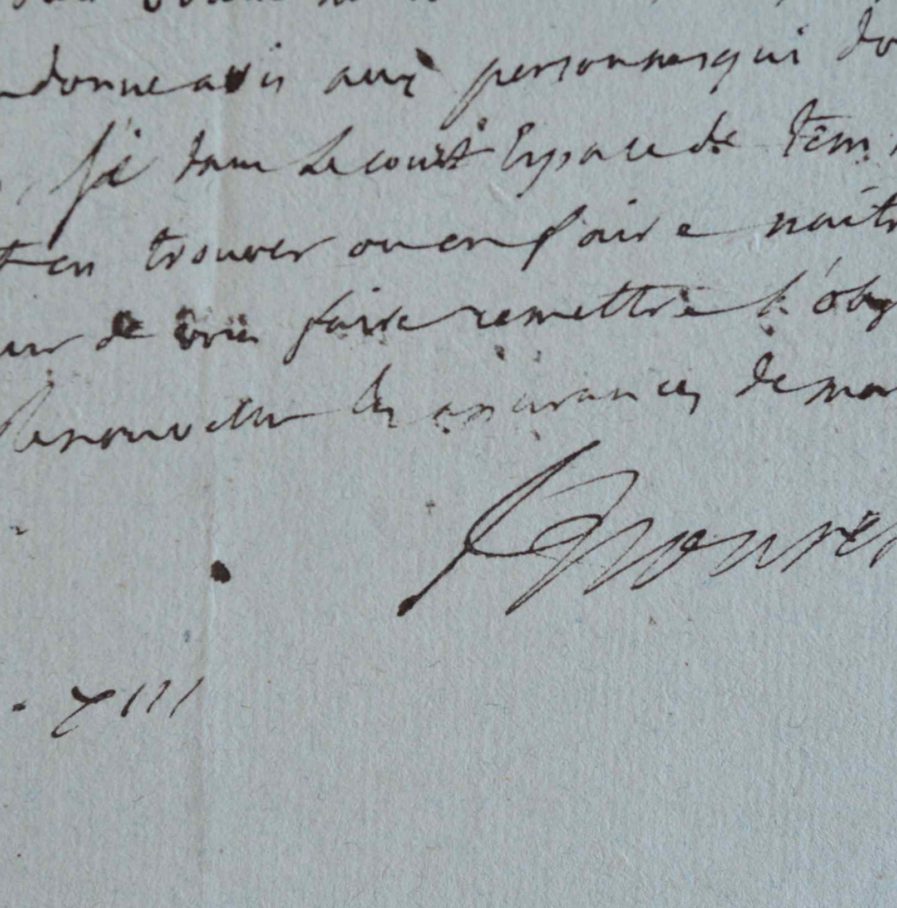 donne avis aux personnes qui do
, si dans Le court Espace de tems
en trouver ou en faire naitr
ur de vous faire remettre l'obj
Renouveller les assurances de ma
VIII